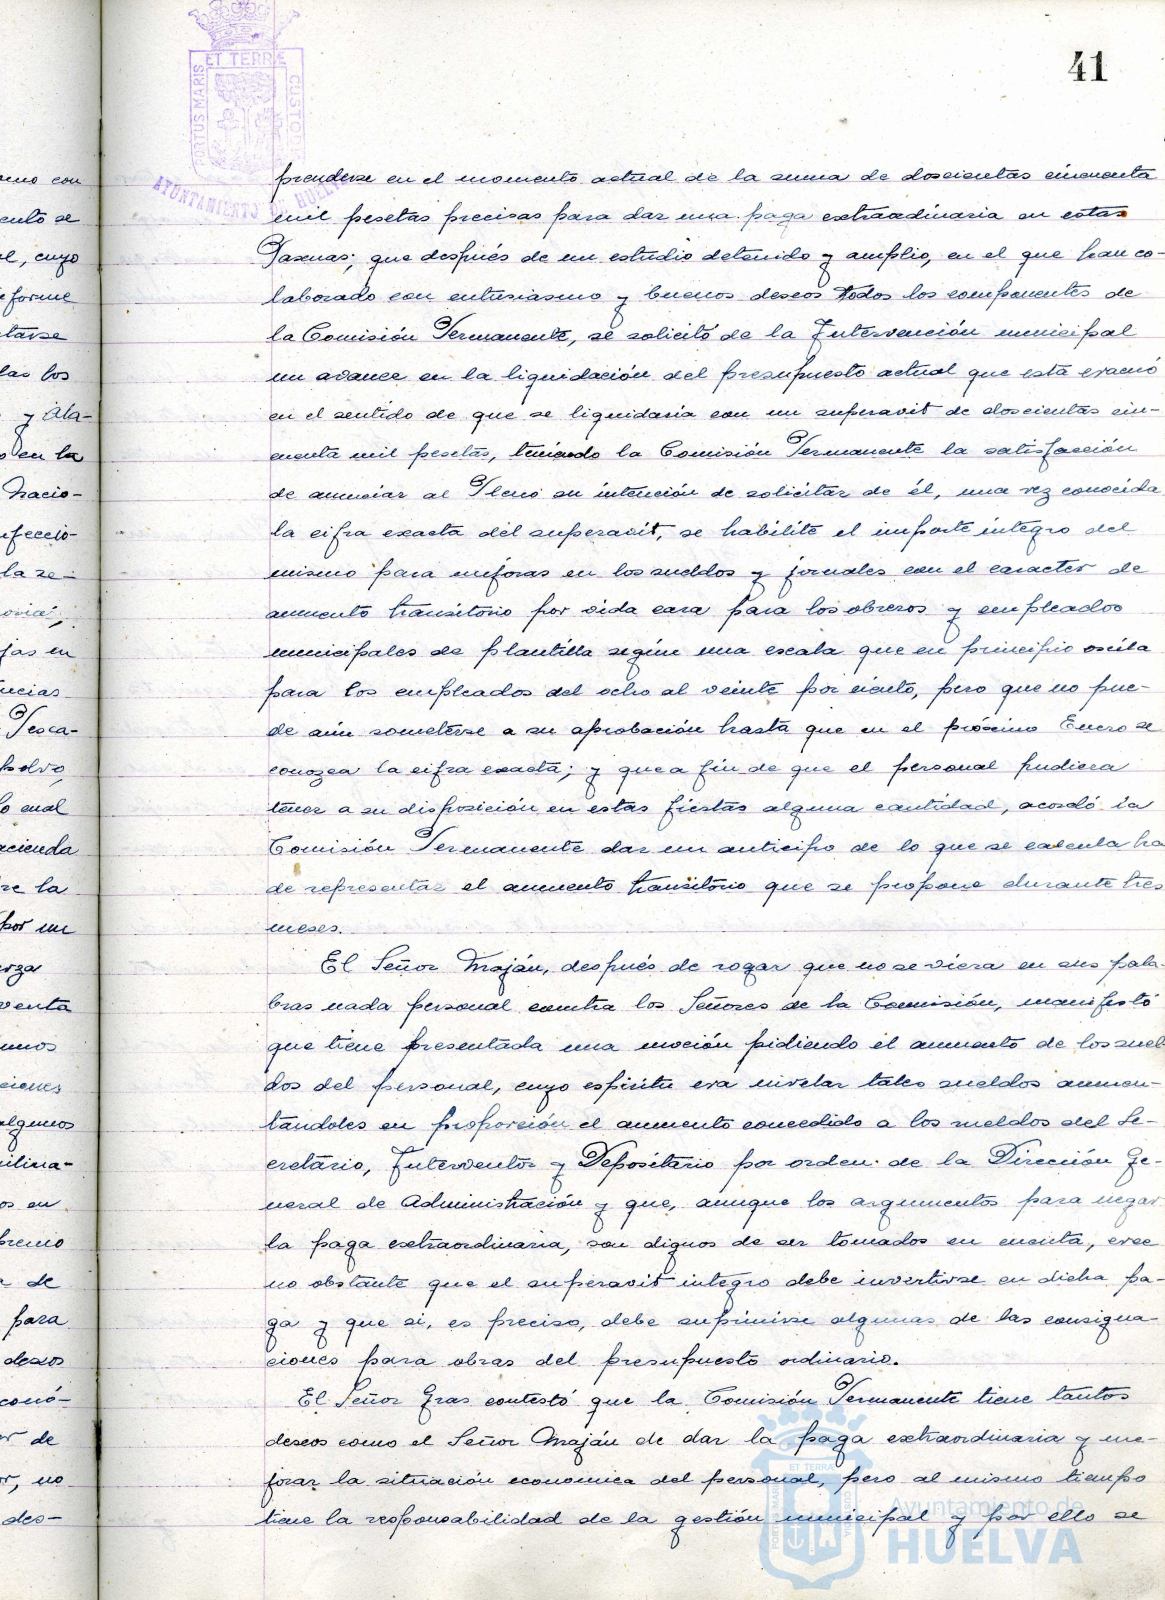 41
PORTUS MARIS ET TERRE CUSTODIA
AYUNTAMIENTO DE HUELVA
prenderse en el momento actual de la suma de doscientas cincuenta
mil pesetas precisas para dar una paga extraordinaria en estas
Pascuas; que después de un estudio detenido y amplio, en el que han co-
laborado con entusiasmo y buenos deseos todos los componentes de
la Comisión Permanente, se solicitó de la Intervención municipal
un avance en la liquidación del presupuesto actual que está evacuó
en el sentido de que se liquidaría con un superavit de doscientas cin-
cuenta mil pesetas, teniendo la Comisión Permanente la satisfacción
de anunciar al Pleno su intención de solicitar de él, una vez conocida
la cifra exacta del superavit, se habilite el importe íntegro del
mismo para mejoras en los sueldos y jornales con el caracter de
aumento transitorio por vida cara para los obreros y empleados
municipales de plantilla según una escala que en principio oscila
para los empleados del ocho al veinte por ciento, pero que no pue-
de aún someterse a su aprobación hasta que en el próximo Enero se
conozca la cifra exacta; y que a fin de que el personal pudiera
tener a su disposición en estas fiestas alguna cantidad, acordó la
Comisión Permanente dar un anticipo de lo que se calcula ha
de representar el aumento transitorio que se propone durante tres
meses.
El Señor Maján, después de rogar que no se viera en sus pala-
bras nada personal contra los Señores de la Comisión, manifestó
que tiene presentada una moción pidiendo el aumento de los suel
dos del personal, cuyo espíritu era nivelar tales sueldos aumen-
tándoles en proporción el aumento concedido a los sueldos del Se-
cretario, Interventor y Depositario por orden de la Dirección Ge-
neral de Administración y que, aunque los argumentos para negar
la paga extraordinaria, son dignos de ser tomados en cuenta, cree
no obstante que el superavit íntegro debe invertirse en dicha pa-
ga y que si, es preciso, debe suprimirse algunas de las consigna-
ciones para obras del presupuesto ordinario.
El Señor Gras contestó que la Comisión Permanente tiene tantos
deseos como el Señor Maján de dar la paga extraordinaria y me-
jorar la situación economica del personal, pero al mismo tiempo
tiene la responsabilidad de la gestión municipal y por ello se
Ayuntamiento de
HUELVA